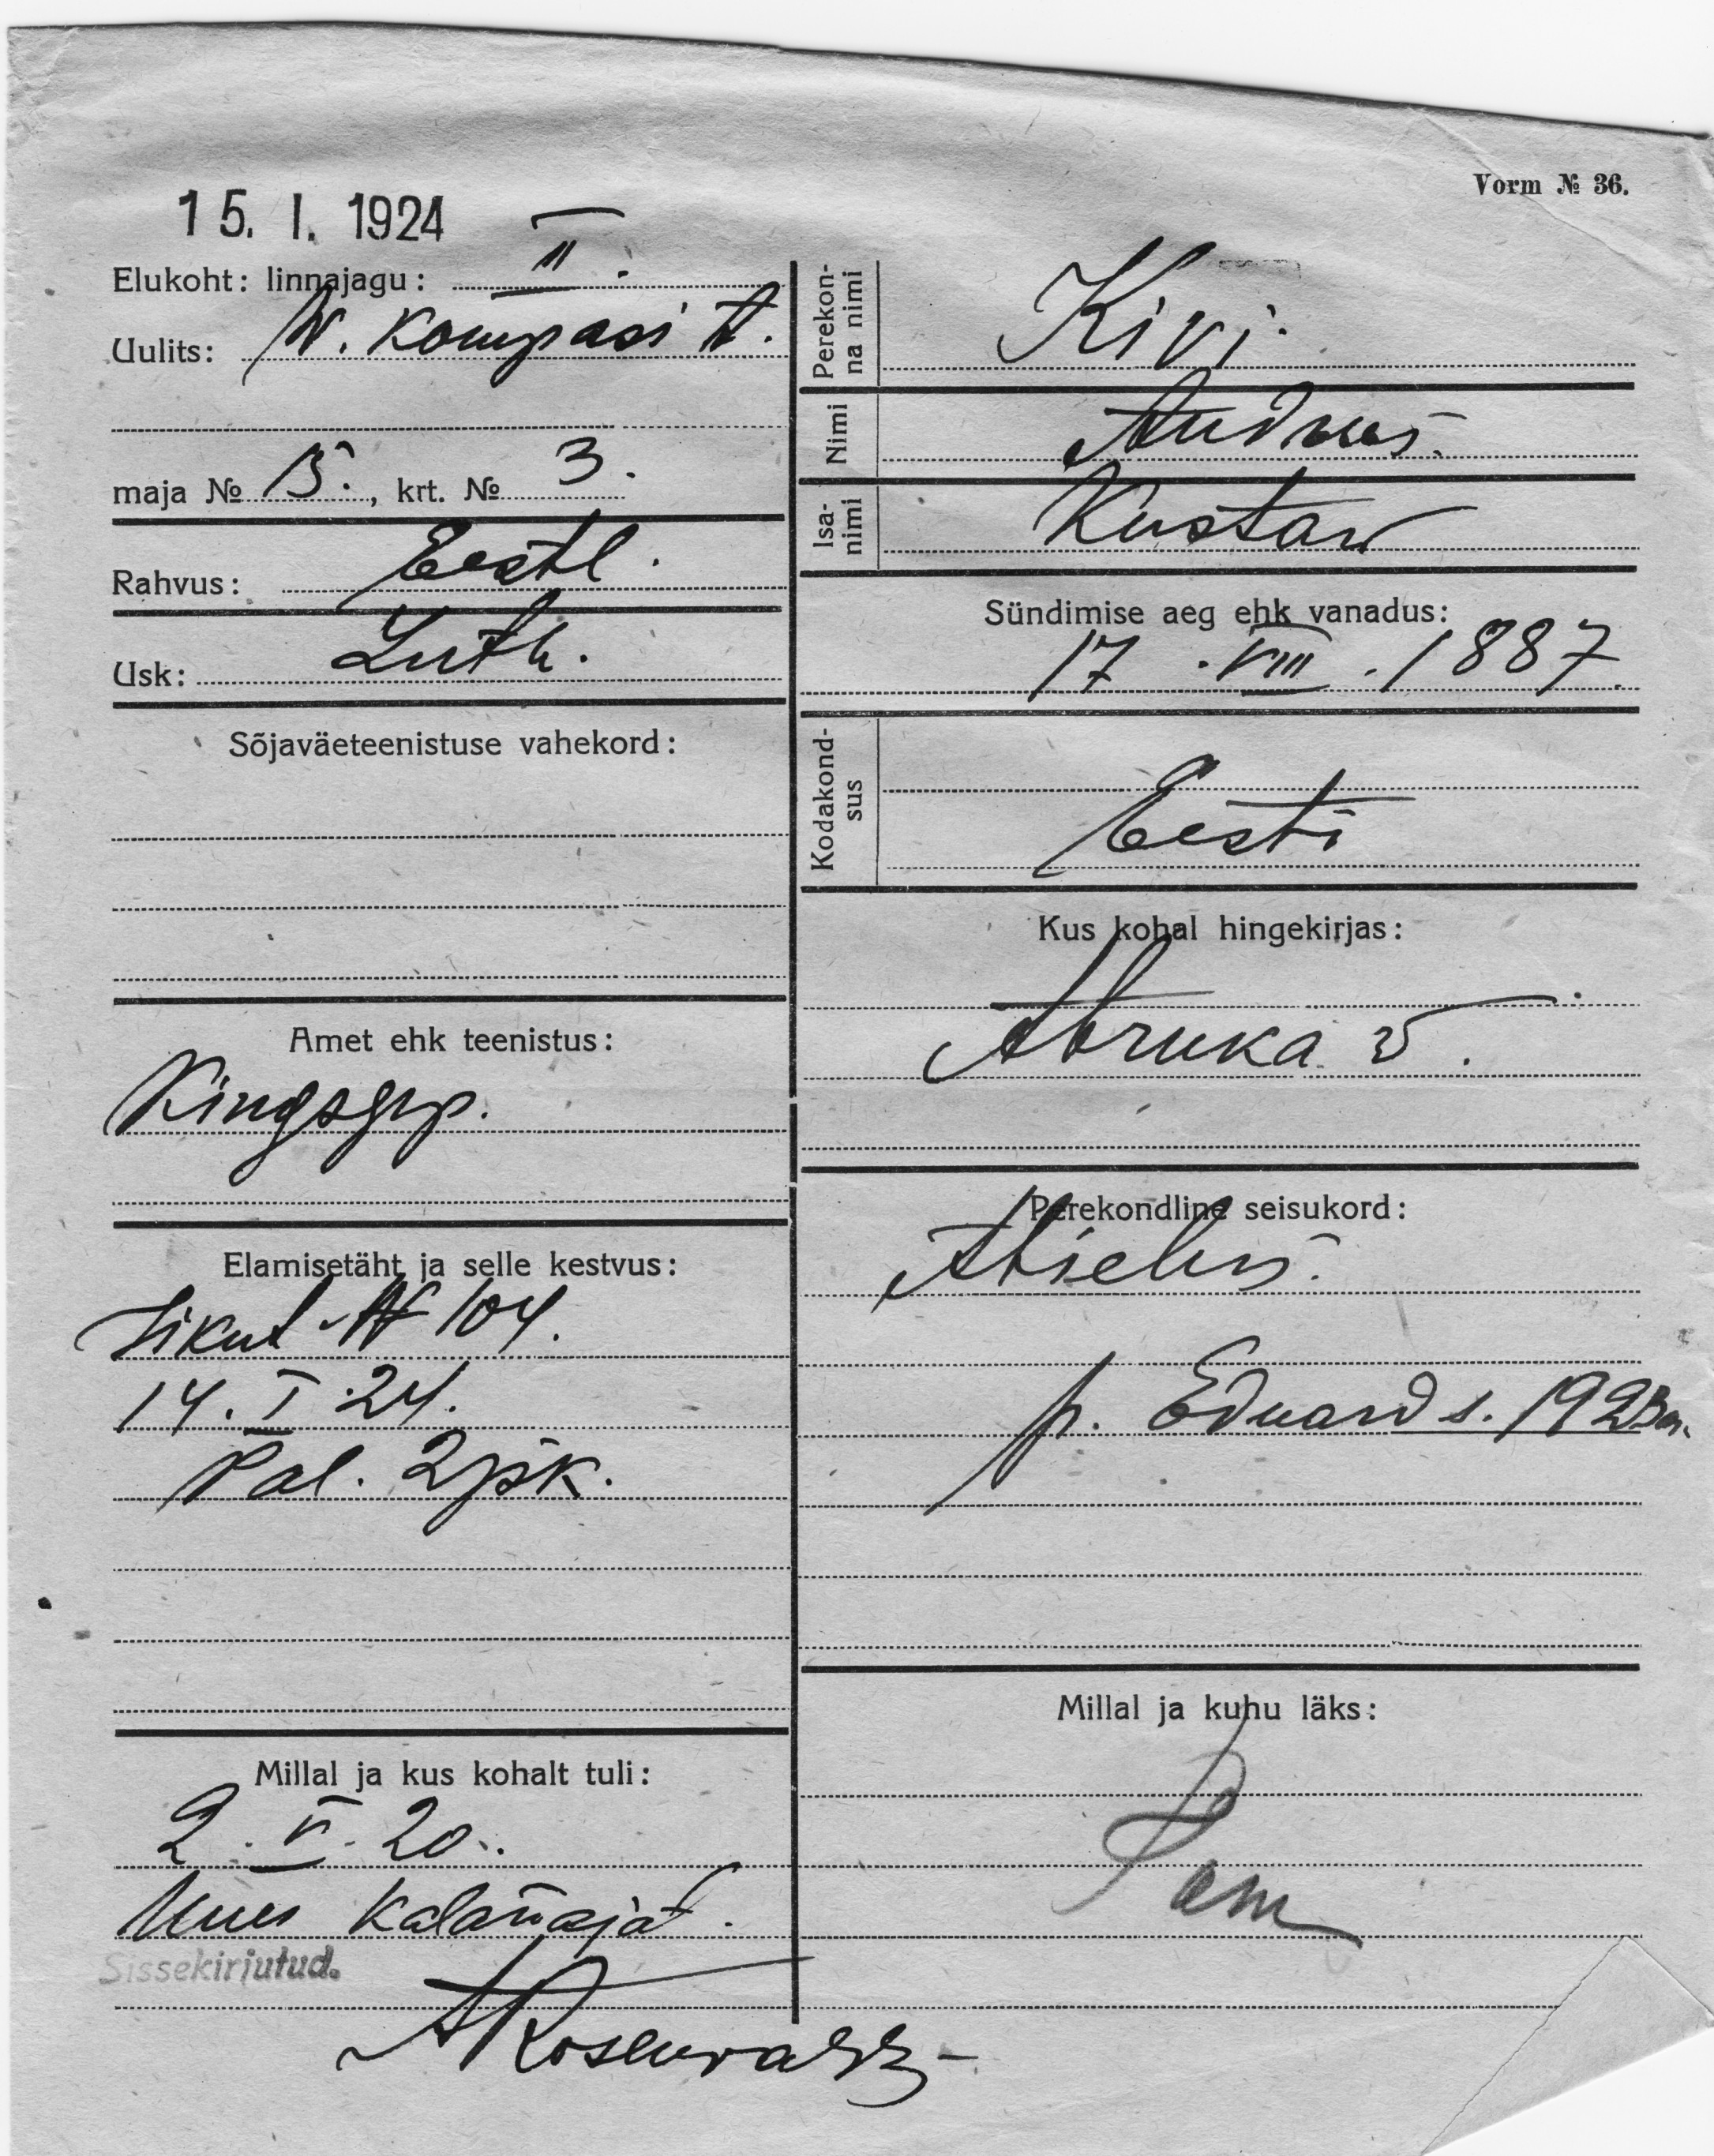 Vorm № 36.
15. I. 1924
Elukoht: linnajagu: II.
Uulits: W. Kompasi t.
maja № 15., krt. № 3.
Rahvus: Eestl.
Usk: Luth.
Sõjaväeteenistuse vahekord:
Amet ehk teenistus:
Kingsepp.
Elamisetäht ja selle kestvus:
Isikut. № 104.
14. I. 24.
Pol. 2 jsk.
Millal ja kus kohalt tuli:
2. V. 20.
Uues Kalamaja t.
Sissekirjutud.
Perekonna nimi
Kivi.
Nimi
Andrus.
Isanimi
Kustav
Sündimise aeg ehk vanadus:
17. VIII. 1887.
Kodakondsus
Eesti
Kus kohal hingekirjas:
Abruka v.
Perekondline seisukord:
Abielus.
p. Eduard s. 1923 a.
Millal ja kuhu läks: